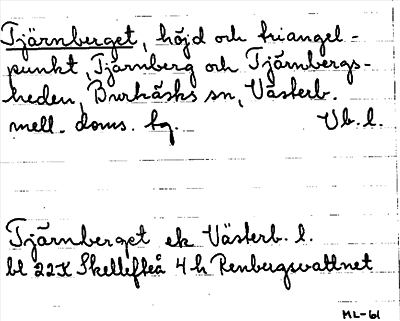 Tjärnberget, höjd och triangel-
punkt, Tjärnberg och Tjärnbergs-
heden, Burträsks sn, Västerb.
mell. doms. tg. Vb. l.
Tjärnberget ek Västerb. l.
bl 22K Skellefteå 4h Renbergsvattnet
ML-61